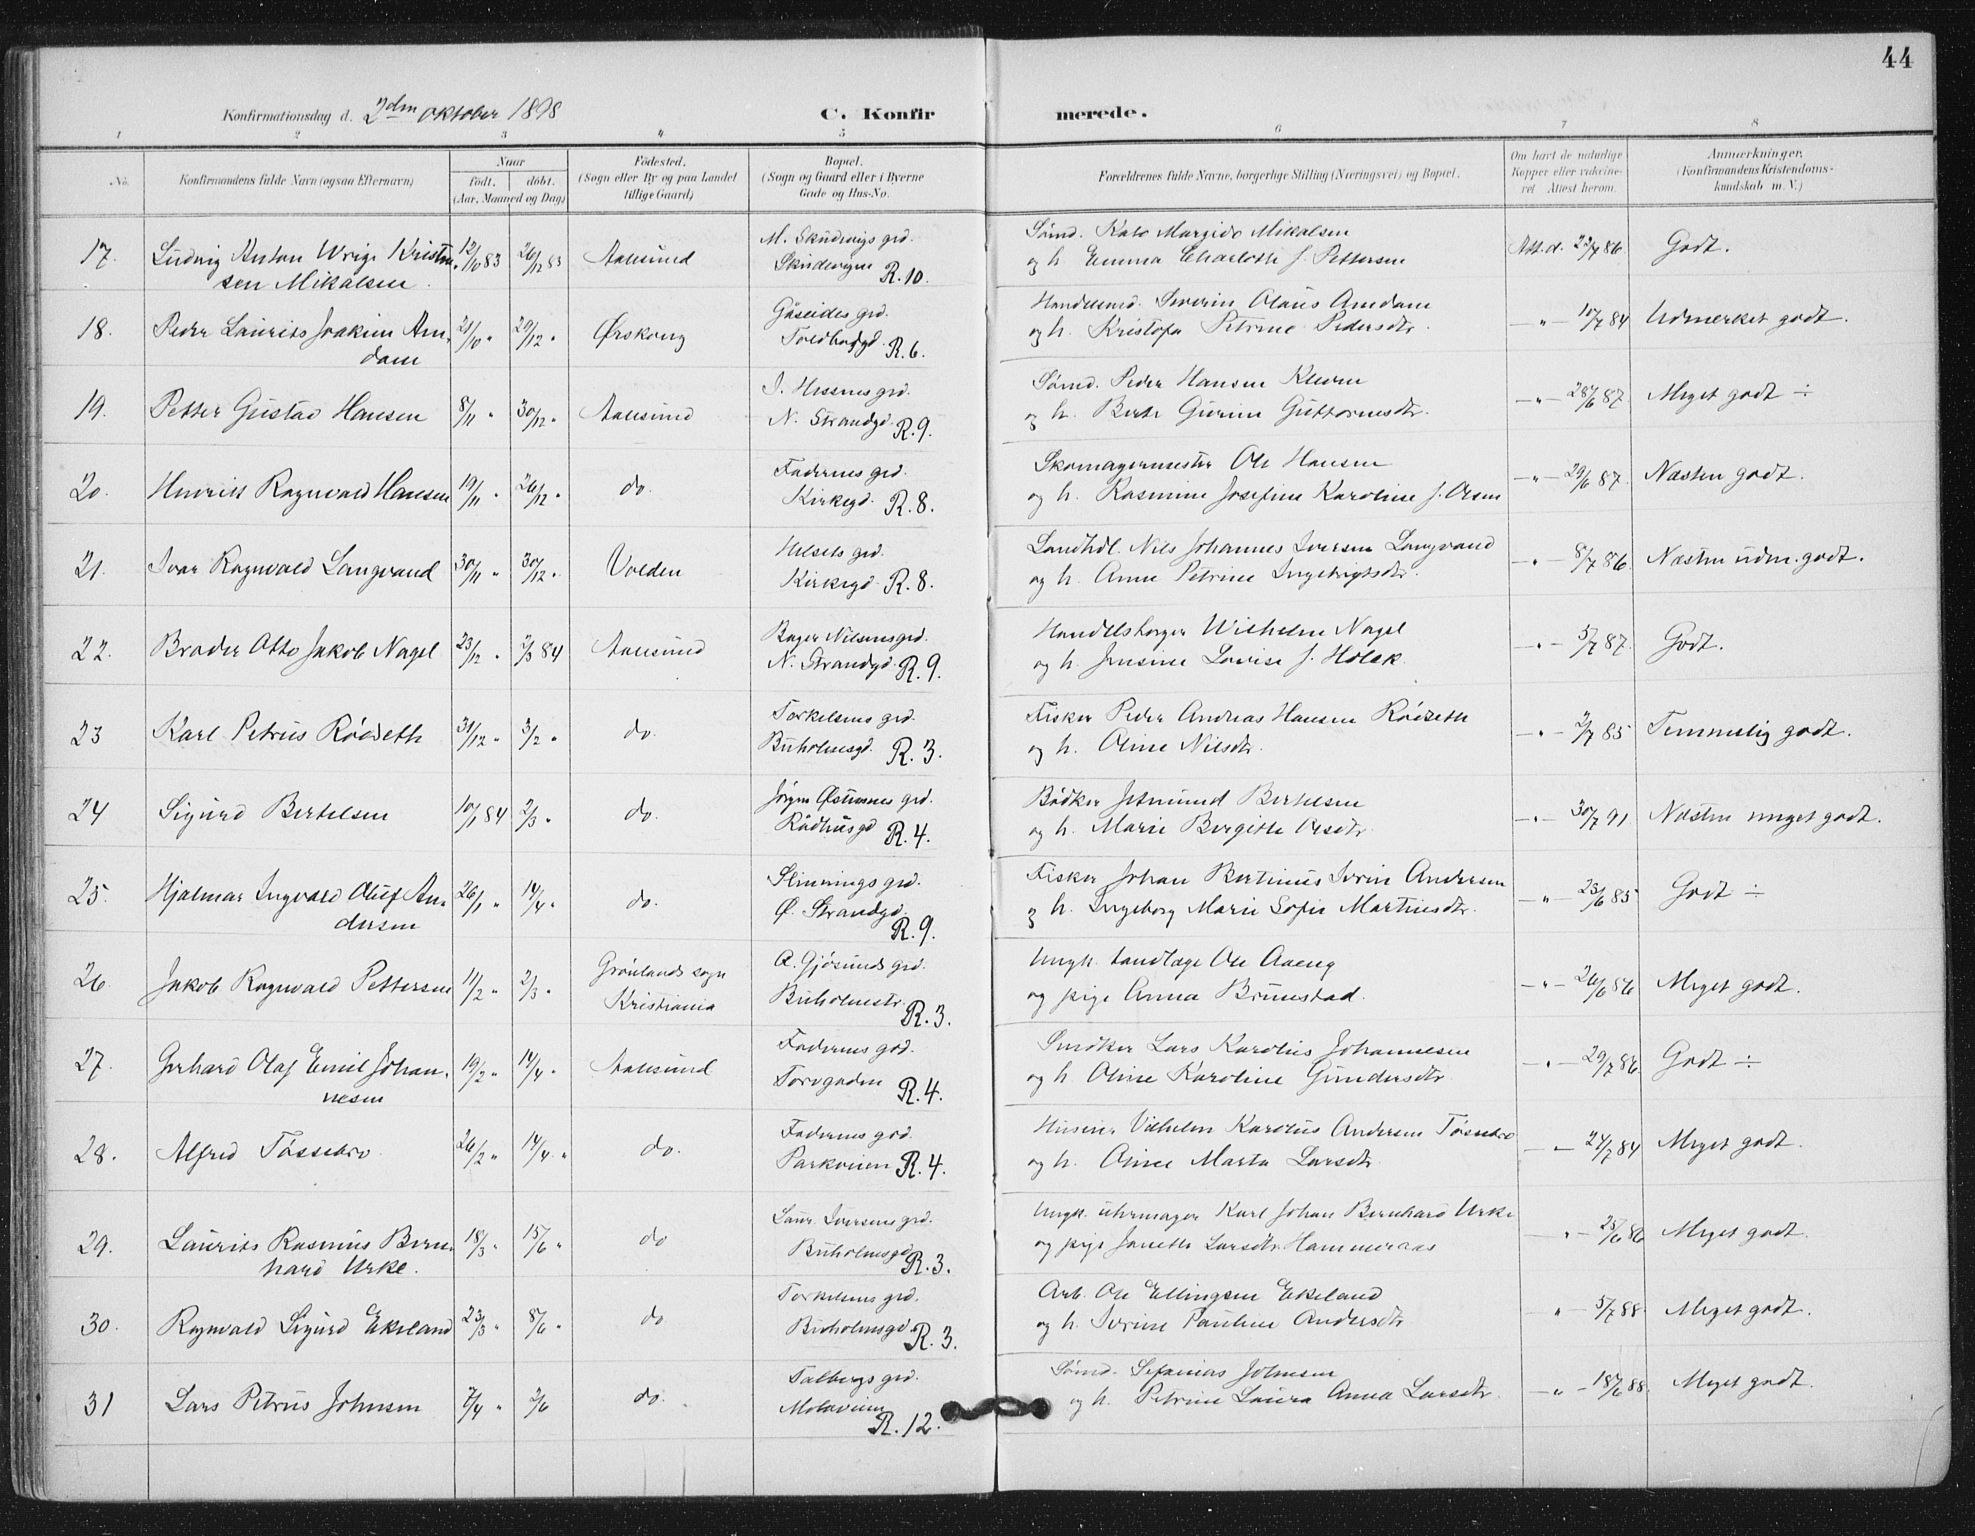 44
Konfirmationsdag d. 2den Oktober 1898 C. Konfirmerede.
1 2 3 4 5 6 7 8
No. Konfirmandens fulde Navn (ogsaa Efternavn) Naar født. døbt. (Aar, Maaned og Dag) Fødested. (Sogn eller By og paa Landet tillige Gaard) Bopæl. (Sogn og Gaard eller i Byerne Gade og Hus-No. Forældrenes fulde Navne, borgerlige Stilling (Næringsvei) og Bopæl. Om havt de naturlige Kopper eller vakcineret Attest herom. Anmærkninger. (Konfirmandens Kristendomskundskab m. V.)
17. Ludvig Anton Wrigt Kristensen Mikalsen 12/10 83 26/12 83 Aalesund M. Skudevigs grd. Skudevigen R.10. Sømd. Kato Margido Mikalsen og h. Emma Charlotte f. Pettersen Att. d. 22/7 86 Godt.
18. Peder Laurits Joakim Amdam 21/10 " 29/12 " Ørskoug Gåseides grd. Toldbodgd. R.6. Handelsmd. Severin Olaus Amdam og h. Kristofa Petrine Pedersdtr. — " — 10/7 84 Udmerket godt.
19. Petter Gustav Hansen 8/11 " 30/12 " Aalesund J. Hessens grd. N. Strandgd. R.9. Sømd. Peder Hansen Kleven og h. Berte Gurine Guttormsdtr. — " — 28/6 87 Meget godt ÷
20. Henrik Ragnvald Hansen 19/11 " 26/12 " do. Faderens grd. Kirkegd. R.8. Skomagermester Ole Hansen og h. Rasmine Josefine Karoline f. Olsen — " — 29/6 87. Næsten godt.
21. Ivar Ragnvald Langvand 30/11 " 30/12 " Volden Helsets grd. Kirkegd. R.8. Landhdl. Nils Johannes Iversen Langvand og h. Anne Petrine Ingebrigtsdtr. — " — 8/7 86 Næsten udm. godt.
22. Broder Otto Jakob Nagel 23/12 " 2/3 84 Aalesund Bager Nilsens grd. N. Strandgd. R.9. Handelsborger Wilhelm Nagel og h. Jensine Lovise f. Holck. — " — 5/7 87. Godt.
23 Karl Petrus Röiseth 31/12 " 3/2 " do. Torkelsens grd. Buholmsgd. R.3. Fisker Peder Andreas Hansen Röiseth og h. Oline Nilsdtr. — " — 2/7 85 Temmelig godt.
24 Sigurd Bertelsen 10/1 84 2/3 " do. Jörgen Østrems grd. Rådhusgd R.4. Bødker Jetmund Bertelsen og h. Marie Bergitte Olsdtr. — " — 30/7 91 Næsten meget godt.
25. Hjalmar Ingvald Oluf Andersen 26/1 " 14/4 " do. Slinnings grd. Ø. Strandgd. R.9. Fisker Johan Bertinius Iverin Andersen og h. Ingeborg Marie Sofie Martinsdtr. — " — 23/6 85 Godt ÷
26. Jakob Ragnvald Pettersen 11/2 " 2/3 " Grönlands sogn Kristiania A. Gjøsunds grd. Buholmstr. R.3. Ungk. tandlæge Ole Aaeng og pige Anna Brunstad. — " — 26/6 86 Meget godt.
27. Gerhard Olaf Emil Johannesen 19/2 " 14/4 " Aalesund Faderens grd. Torvgaden R.4. Smöker Lars Karolius Johannesen og h Oline Karoline Gundersdtr. — " — 29/7 86 Godt ÷
28. Alfred Tøssebro 26/2 " 14/4 " do. Faderens grd. Parkveien R.4. Huseier Vilhelm Karolus Andersen Tøssebro og h. Oline Marta Larsdtr. — " — 24/7 84 Meget godt.
29. Laurits Rasmus Bernhard Urke. 18/3 " 15/6 " do Laur. Iversens grd. Buholmsgd R.3. Ungk. uhrmager Karl Johan Bernhard Urke og pige Janette Larsdtr. Hammeraas " — 25/6 86 Meget godt.
30. Ragnvald Sigurd Ekeland 23/3 " 8/6 " do Torkelsens grd. Buholmsgd R.3. Arb. Ole Ellingsen Ekeland og h. Iverine Pauline Andersdtr " — 5/7 88. Meget godt.
31 Lars Petrus Johnsen 7/4 " 2/6 do. Talbergs grd. Moloveien R.12. Sømd. Sefanias Johnsen og h. Petrine Laura Anna Larsdtr. — " — 18/6 88. Meget godt.